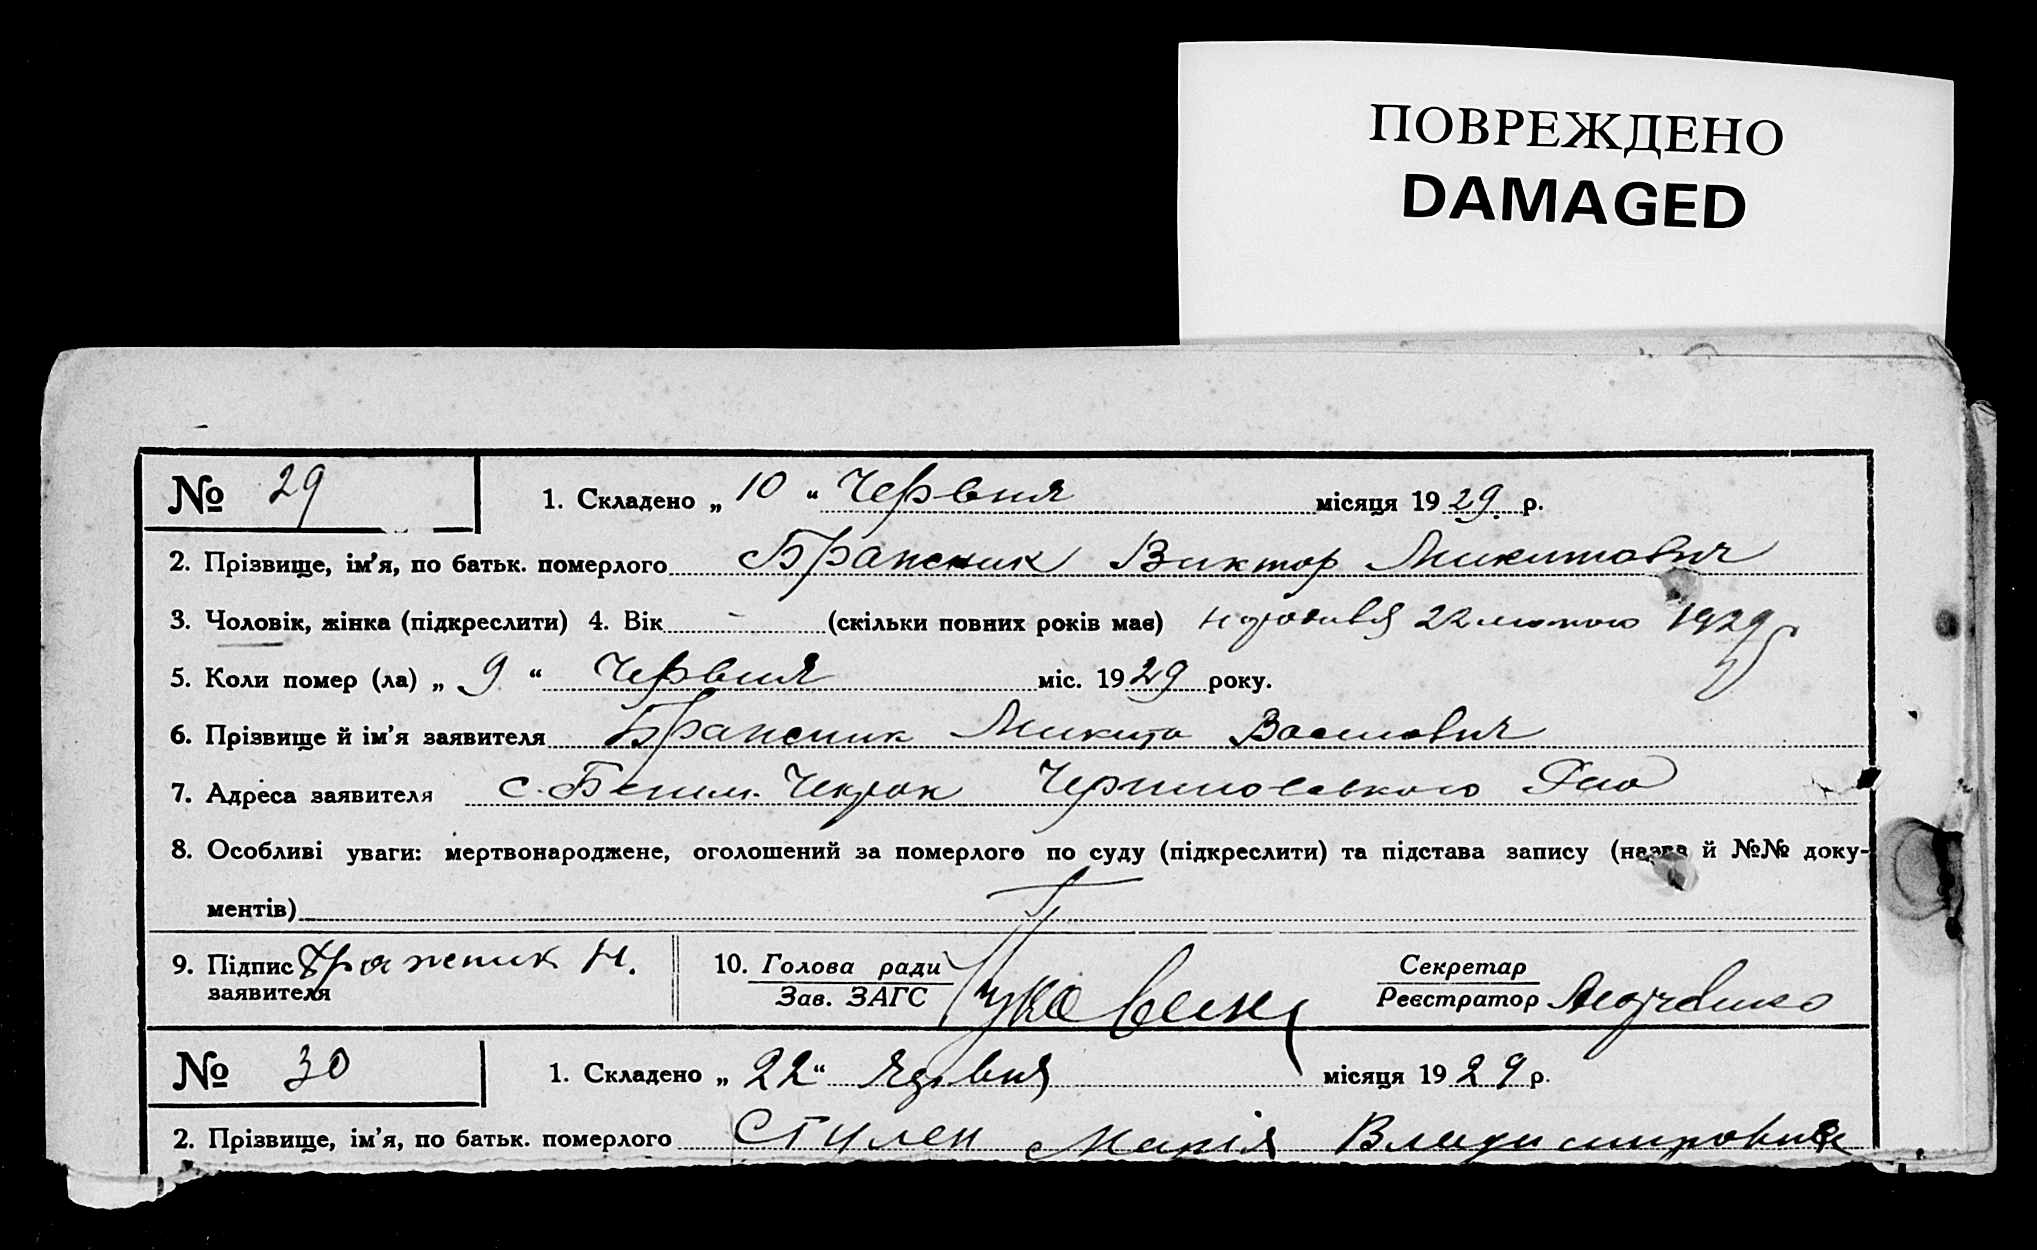 ПОВРЕЖДЕНО
DAMAGED
№ 29 1. Складено „ 10 “ Червня місяця 1929 р.
2. Прізвище, ім'я, по батьк. померлого Бражник Виктор Микитович
3. Чоловік, жінка (підкреслити) 4. Вік - (скільки повних років має) народився 22 лютого 1929 р
5. Коли помер (ла) „ 9 “ Червня міс. 1929 року.
6. Прізвище й ім'я заявителя Бражник Микита Василович
7. Адреса заявителя с. Чокрак
8. Особливі уваги: мертвонароджене, оголошений за померлого по суду (підкреслити) та підстава запису (назва й №№ доку-
ментів)
9. Підпис Бражник Н. 10. Голова ради Секретар
заявителя Зав. ЗАГС Реєстратор
№ 30 1. Складено „ 22 “ місяця 1929 р.
2. Прізвище, ім'я, по батьк. померлого Марія